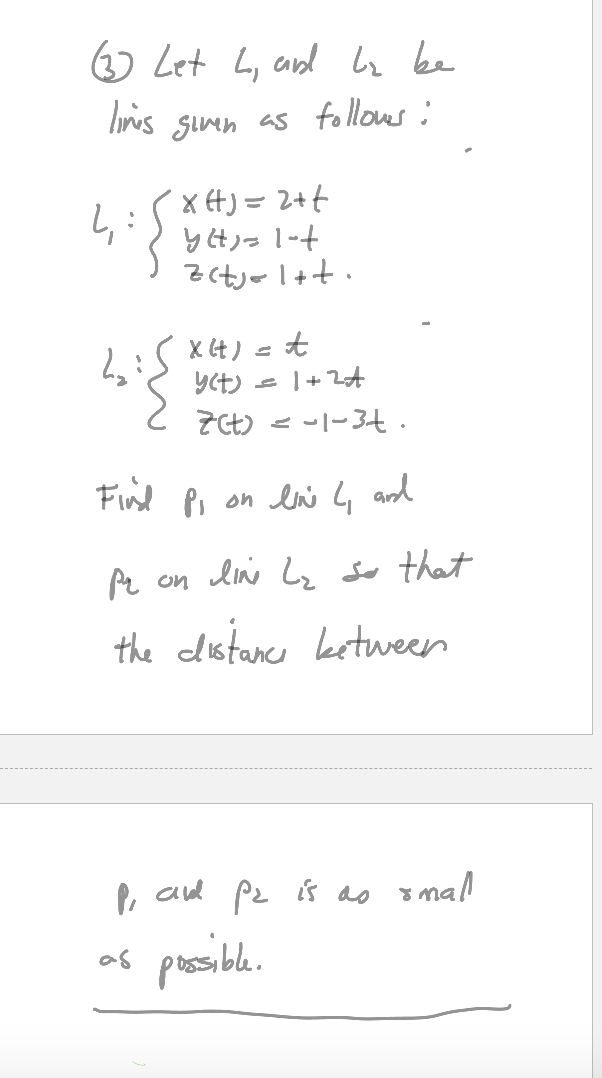 ③ Let L₁ and L₂ be
lines given as follows:
L₁: { x(t) = 2+t
y(t) = 1-t
z(t) = 1+t.
L₂: { x(t) = t
y(t) = 1+2t
z(t) = -1-3t.
Find p₁ on line L₁ and
p₂ on line L₂ so that
the distance between
p₁ and p₂ is as small
as possible.